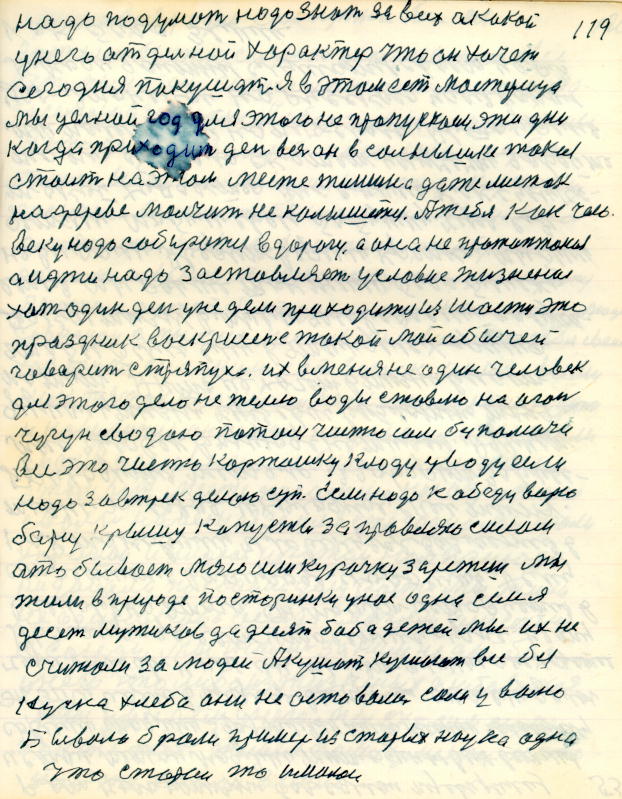 надо подумат надо знат за всех а какой
119
унего отделной характер что он хочет
сегодня покушат. Я в этом ест мастерица
мы целной год для этого не пропускаем эти дни
когда приходит ден весь он в солнышке такая
стоит на этом месте тишина даже листок
на дереве молчит не колышется. А тебя как чело-
веку надо собиратся в дорогу. а она не протоптаная
а идти надо заставляет условие жизненая
хот один ден у недели приходится из шасти это
праздник воскрисение такой мой обычей
говарит стряпуха. их в меня не один человек
для этого дело не жалею воды ставлю на огон
чугун с водою потом чисто
все это чисто картошку кладу у воду если
надо завтрек делаю суп. Если надо к обеду варю
борщ крышу капусти заправляю салом
а то бывает мясо или курочку зарежем мы
жили в природе по старинки у нас одна семя
десет мужиков да десят баб а детей мы их не
считали за людей А кушат кушают все бу
куска хлеба они не оставалис
Бывало брали пример из старых наука одна
что старей то